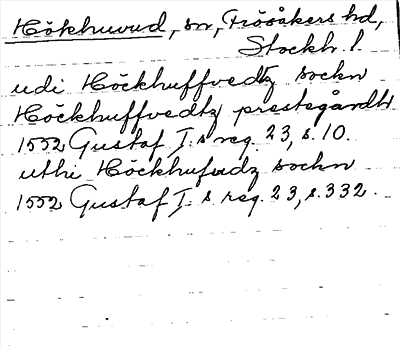 Hökhuvud, sn, Frösåkers hd,
Stockh. l.
udi Höckhuffvedtz sockn
Höckhuffvedtz prestegårdh
1552 Gustaf I.s reg. 23, s. 10.
uthi Höckhufudz sockn
1552 Gustaf I.s reg. 23, s. 332.